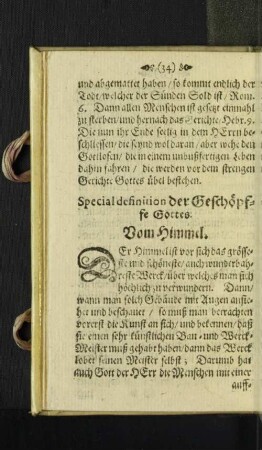 (34)
und abgemattet haben / so kommt endlich der
Todt / welcher der Sünden Sold ist / Rom.
6. Dann allen Menschen ist gesetzt einmahl
zu sterben / und hernach das Gerichte / Hebr. 9.
Die nun ihr Ende seelig in dem HErrn be-
schliessen / die seynd wol daran / aber wehe den
Gottlosen / die in einem unbußfertigen Leben
dahin fahren / die werden vor dem strengen
Gerichte Gottes übel bestehen.
Special definition der Geschöpf-
fe Gottes.
Vom Himmel.
DEr Himmel ist vor sich das grösse-
ste und schöneste / auch wunderbah-
reste Werck / über welches man sich
höchlich zu verwundern. Dann /
wann man solch Gebäude mit Augen ansie-
het und beschauet / so muß man betrachten
vorerst die Kunst an sich / und bekennen / daß
sie einen sehr künstlichen Bau- und Werck-
Meister muß gehabt haben / dann das Werck
lobet seinen Meister selbst; Darumb hat
auch Gott der HErr die Menschen mit einer
auff-